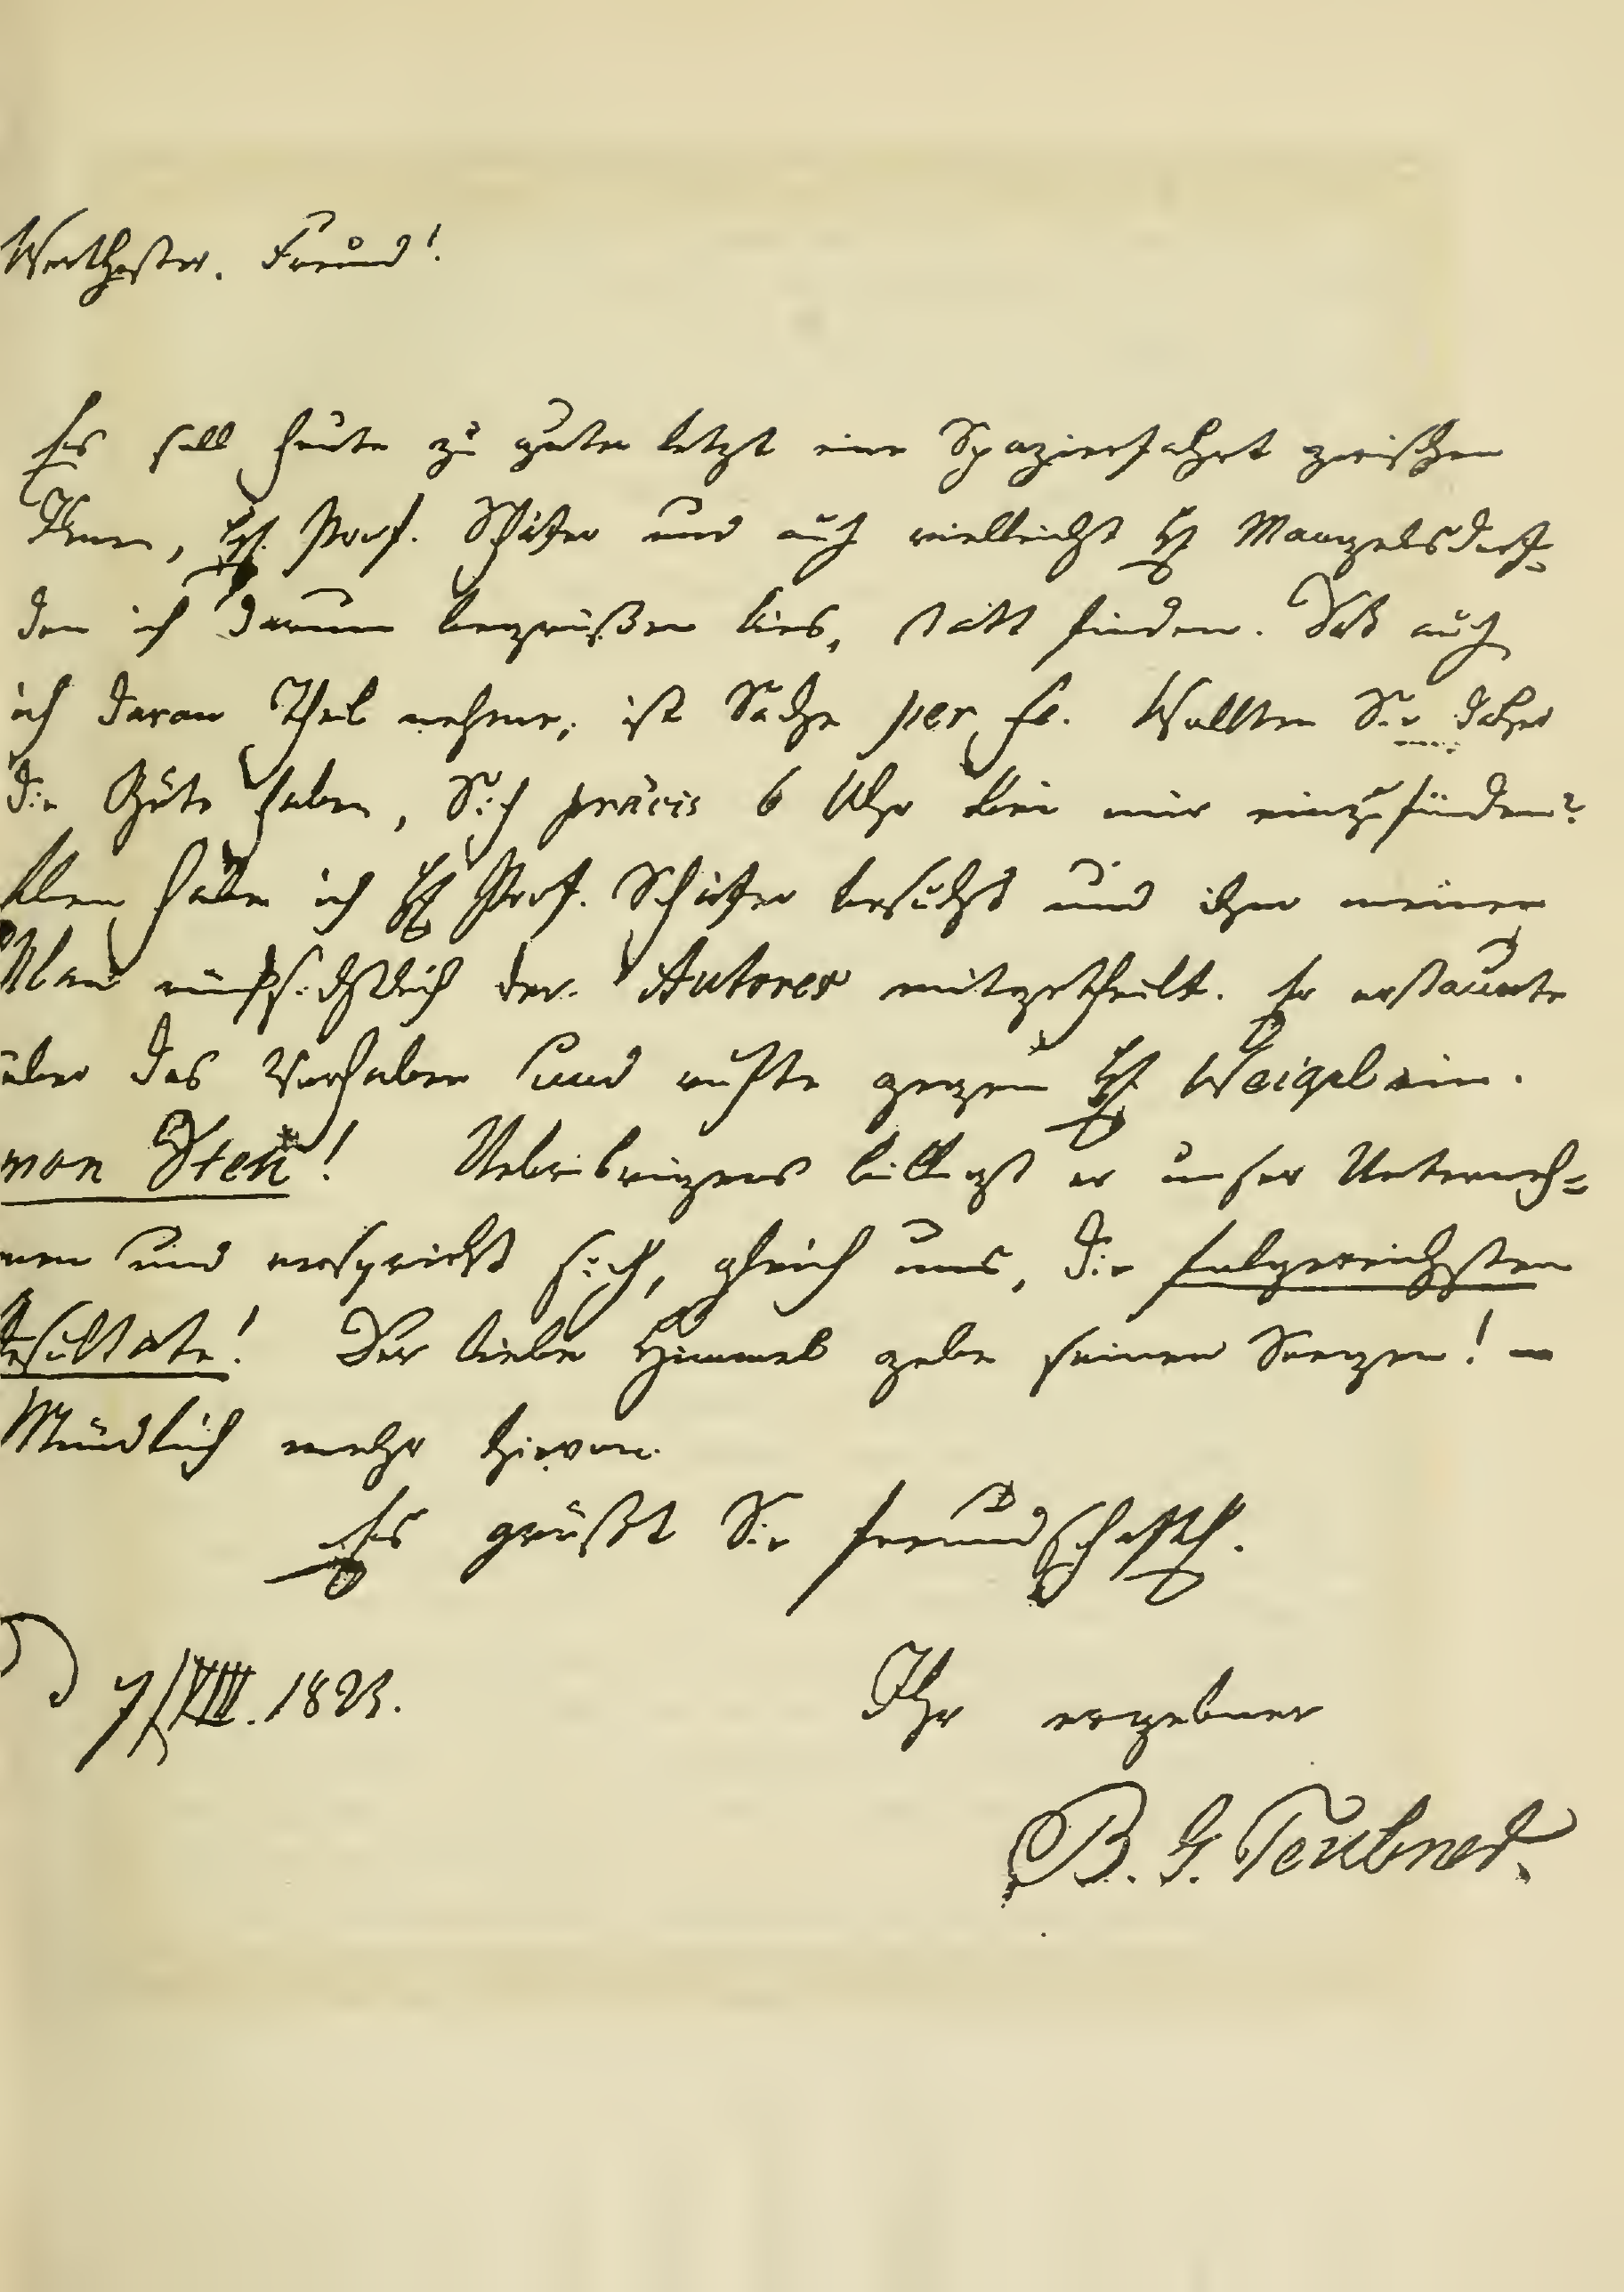 Werthester Freund!
Es soll heute zu guter letzt eine Spazierfahrt zwischen
Ihnen, H. Prof. Schäfer und auch vielleicht H. Mangelsdorf-
den ich darum begrüßen lies, statt finden. Daß auch
ich daran Theil nehme, ist Sache per se. Wollten Sie daher
die Güte haben, Sich präcis 6 Uhr bei mir einzufinden?
Eben habe ich H. Prof. Schäfer besucht und ihm meinen
Plan rücksichtlich der Autores mitgetheilt. Er erstaunte
über das Vorhaben und rufte gegen H. Weigel ein.
Uebribrigens billigt er unser Unterneh-
men und verspricht sich, gleich uns, die folgereichsten
Resultate! Der liebe Himmel gebe seinen Seegen! —
Mündlich mehr hievon.
Es grüßt Sie freundschaftl.
7/VIII. 1823.
Ihr ergebner
B. G. Teubner.